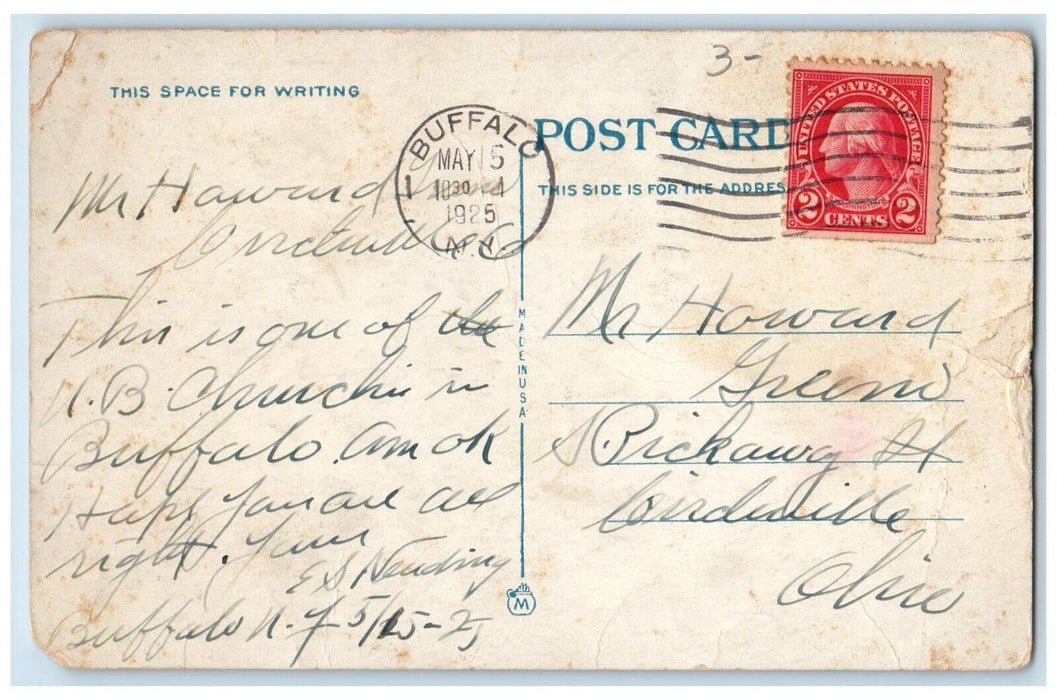 THIS SPACE FOR WRITING
3-
BUFFALO
MAY 15
1030 A
1925
N.Y.
1
POST CARD
THIS SIDE IS FOR THE ADDRES
UNITED STATES POSTAGE
WASHINGTON
2 CENTS 2
Mr Howard
This is one of the
U.B. Churchs in
Buffalo. am ok
Hope you are all
right. Yours
E S
Buffalo N.Y 5/15-25
MADE IN USA
M
Mr Howard
S. Pickawy St
Circleville
Ohio